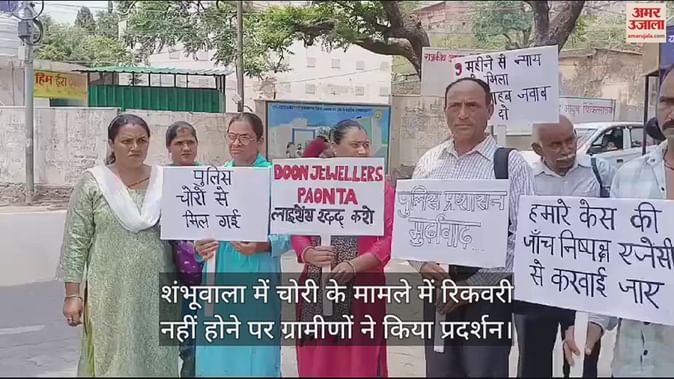 अमर उजाला
amarujala.com
हिम ईरा
9 महीने से न्याय
मिला
जवाब
दो
पुलिस
चोरों से
मिल गई
DOON JEWELLERS
PAONTA
लाइसेंस रद्द करो
पुलिस प्रशासन
मुर्दाबाद...
हमारे केस की
जाँच निष्पक्ष एजेंसी
से करवाई जार
शंभूवाला में चोरी के मामले में रिकवरी
नहीं होने पर ग्रामीणों ने किया प्रदर्शन।